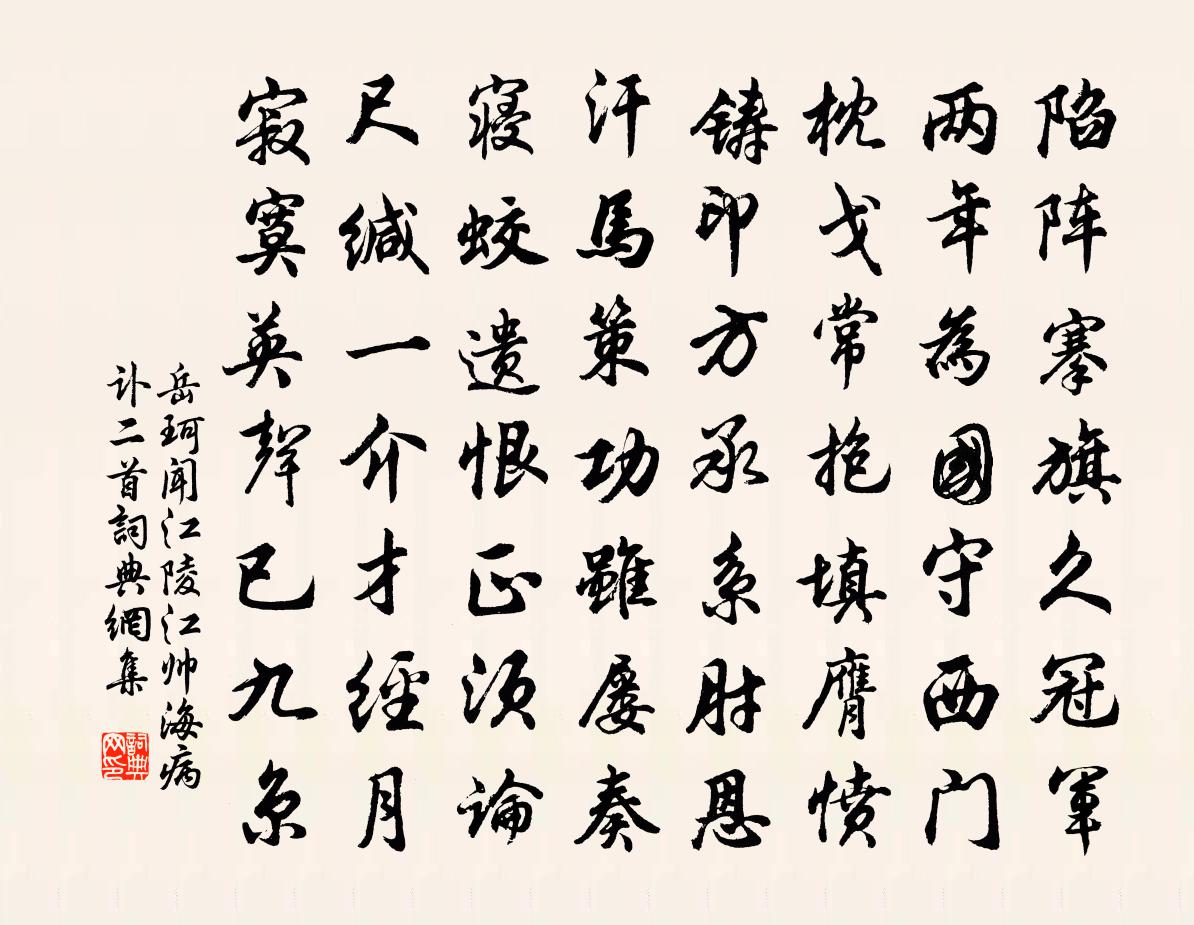 陷阵搴旗久冠軍
两年為國守西门
枕戈常抱填膺愤
鑄印方承系肘恩
汗馬策功雖屡奏
寝蛟遗恨正须論
尺缄一介才經月
寂寞英聲已九原
岳珂闻江陵江帅海病
讣二首詞典網集
詞典
网印